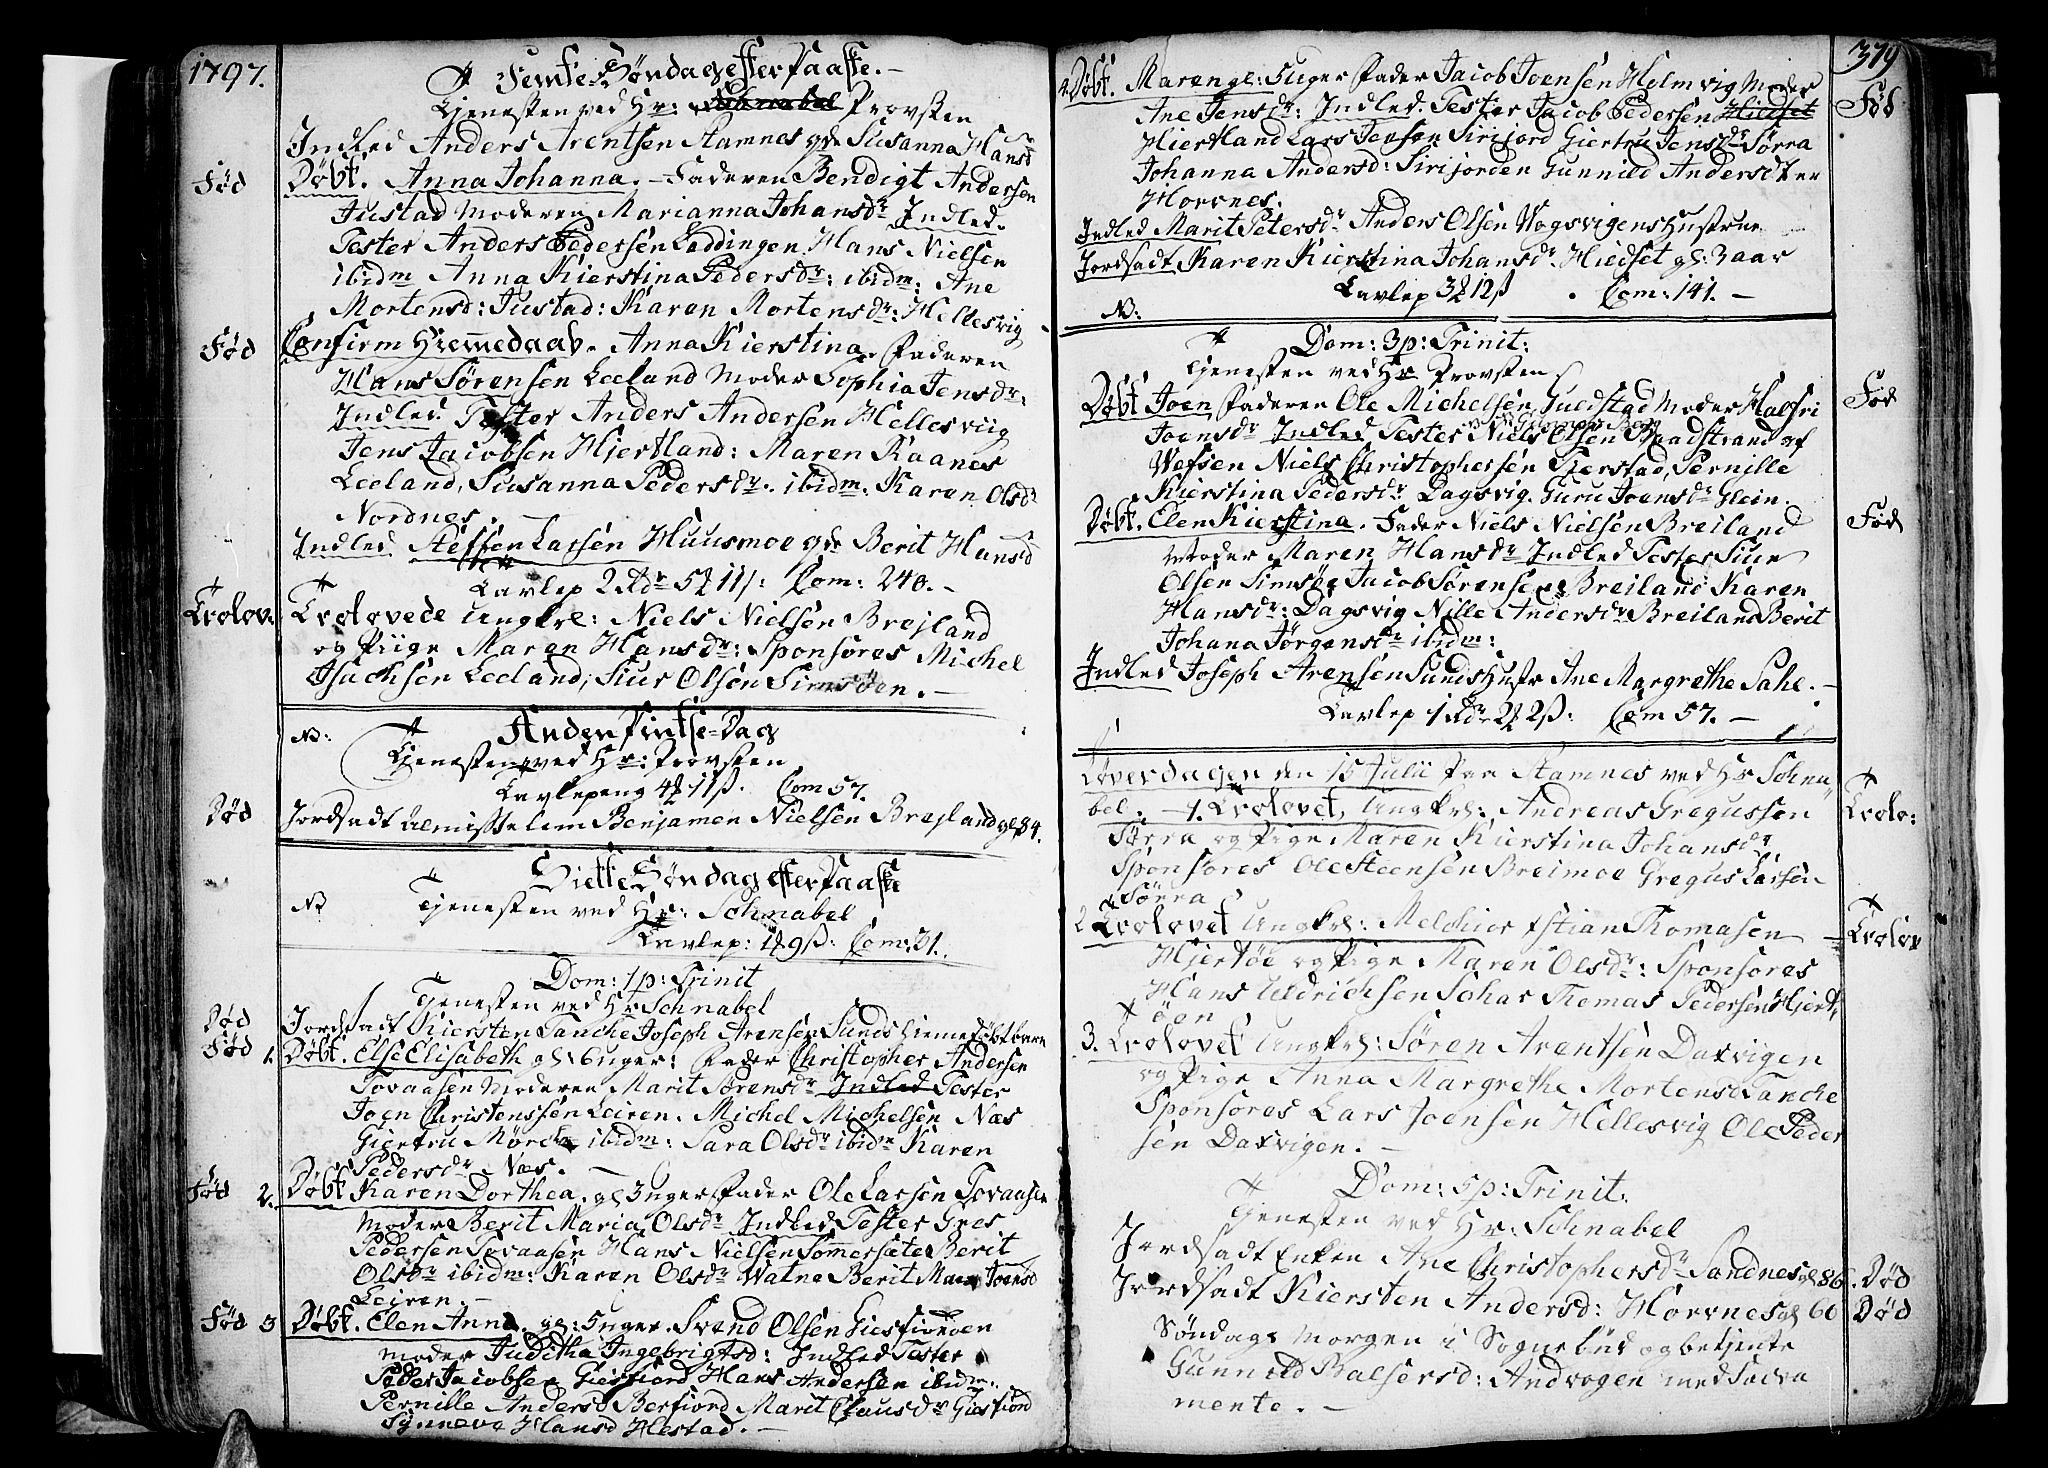 1797.
Femte Søndag efter Paaske. –
Tjenesten ved Hr: Provsten
Indled Anders Arentsen Stamnes qde Susanna Hansdr
Fød
Døbt. Anna Johanna. – Faderen Bendigt Andersen
Justad Moderen Marianna Johansdr Indled.
Tester Anders Pedersen Løddingen Hans Nielsen
ibidm Anna Kierstina Pedersdr: ibidm: Ane
Mortensd: Justad: Karen Mortensdr: Hellesvig
Fød
Confirm Hiemmedaab. Anna Kierstina. Faderen
Hans Sørensen Leeland Moder Sophia Jensdr:
Indled. Tester Anders Andersen Hellesviig
Jens Jacobsen Hjertland: Maren Raanes
Leeland, Susanna Pedersdr. ibidm: Karen Olsdr
Nordnes. –
Indled Steffen Larsen Huusmoe qde Berit Hansd
Tavlep 2 Rdr 5 11ß: Com: 240. –
Trolov:
Trolovede Ungkrl: Niels Nielsen Brejland
og Piige Maren Hansdr: Sponsores Michel
Isachsen Leeland, Siur Olsen Simsøen. –
N:
Anden Pintse-Dag
Tjenesten ved Hr: Provsten
Tavlepeng 4 11ß. Com 57.
Død
Jordsadt Benjamen Nielsen Brejland gl: 84.
Siette Søndag efter Paaske
N
Tjenesten ved Hr: Schnabel
Tavlep: 1 9ß: Com: 31.
Dom: 1 p: Trinit
Tjenesten ved Hr Schnabel
Død
Jordsadt Kiersten Tanche Joseph Arensen Sunds hiemedøbt barn
Fød 1.
Døbt. Else Elisabeth gl: 6 uger: Fader Christopher Andersen
Tovaasen Moderen Marit Sørensdr Indled Tester
Joen Christenssen Leiren. Michel Michelsen Næs
Giertru Mørch ibidm: Sara Olsdr ibidm Karen
Pedersdr Næs. –
Fød 2.
Døbt Karen Dorthea. gl 3 uger Fader Ole Larsen Tovaasen
Moder Berit Maria Olsdr Indled Tester Gres
Pedersen Tovaasen Hans Nielsen Sommersæter Berit
Olsdr ibidm: Karen Olsdr Watne Berit Joensd
Leiren. –
Fød 3
Døbt. Elen Anna. gl: 5 uger. Svend Olsen Giesfiorden
moder Juditha Ingebrigtsd: Indled Tester
Peder Jacobsen Giesfiord Hans Andersen ibidm.
Pernille Andersd Berfiord Marit Clausdr Giesfiord
Synneve Hansd Hestad. –
379
Fød
Døbt. Maren gl: 5 uger Fader Jacob Joensen Helmvig Moder
Ane Jensdr: Indled. Tester Jacob Pedersen Hiedset
Hiertland Lars Jensen Sirijord Giertru Jensdr Sørra
Johanna Andersd: Sirijorden Gunnild Andersdter
Horvnes.
Indled Marit Petersdr Anders Olsen Vogsvigens Hustrue
Jordsadt Karen Kierstina Johansdr. Hiedset gl: 3 aar
Tavlep 3 12ß . Com: 141. –
N:
Dom: 3 p: Trinit:
Tjenesten ved Hr Provsten
Fød
Døbt Joen Faderen Ole Michelsen Guldstad Moder Halfri
Joensdr Indled Tester Niels Olsen Baadstrand af
Vefsen Niels Christophersen Fierstad, Pernille
Kierstina Pedersdr Dagsvig. Guru Joensdr Hein.
Fød
Døbt. Elen Kierstina. Fader Niels Nielsen Breiland
Moder Maren Hansdr Indled Tester Siur
Olsen Simsøe Jacob Sørensen Breiland Karen
Hansdr: Dagsvig Nille Andersdr Breiland Berit
Johana Jørgensdr ibidm:
Indled Joseph Arensen Sunds Hustr Ane Margrethe Sahl. –
Tavlep 1 Rdr 2 2ß: Com 57. –
Løverdagen den 15 Julii paa Stamnes ved Hr Schna-
bel. – 1. Trolovet, Ungkrl: Andreas Gregussen
Trolo:
Sørra og Pige Maren Kierstina Johansdr
Sponsores Ole Steensen Breimoe Gregus Larsen
Sørra
2 Trolovet Ungkrl: Melchior Xstian Thomasen
Trolov
Hjertøe og Pige Maren Olsdr: Sponsores
Hans Uldrichsen Sohar Thomas Pedersen Hjert,
øen
3. Trolovet Ungkrl: Søren Arentsen Daxvigen
og Pige Anna Margrethe Mortensd Tanche
Sponsores Lars Joensen Hellesvig Ole Peder
sen Daxvigen. –
Dom: 5 p: Trinit.
Tjenesten ved Hr: Schnabel
Jordsadt Enken Ane Christophersdr Sandnes gl 86. Død
Jordsadt Kiersten Andersd: Horvnes gl 60 Død
Søndags Morgen i Sognebud og betjente
Gunnild Balsersd: Andvogen med Sacra
mente. –